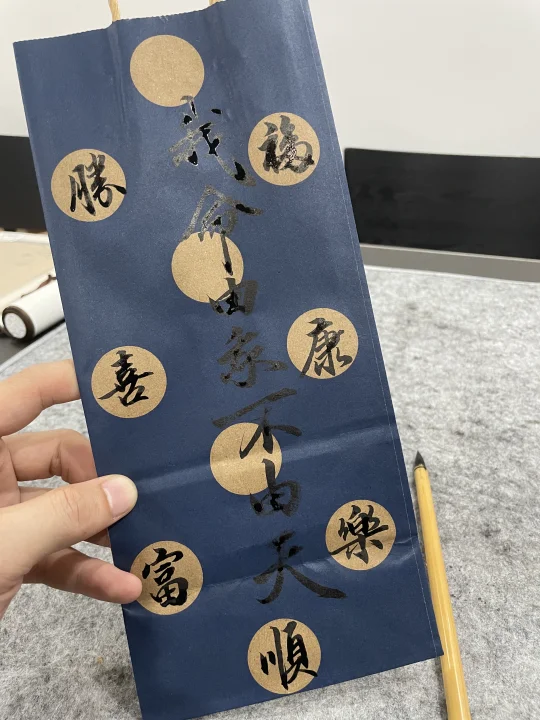 我命由不由天
福
康
樂
勝
喜
富
順